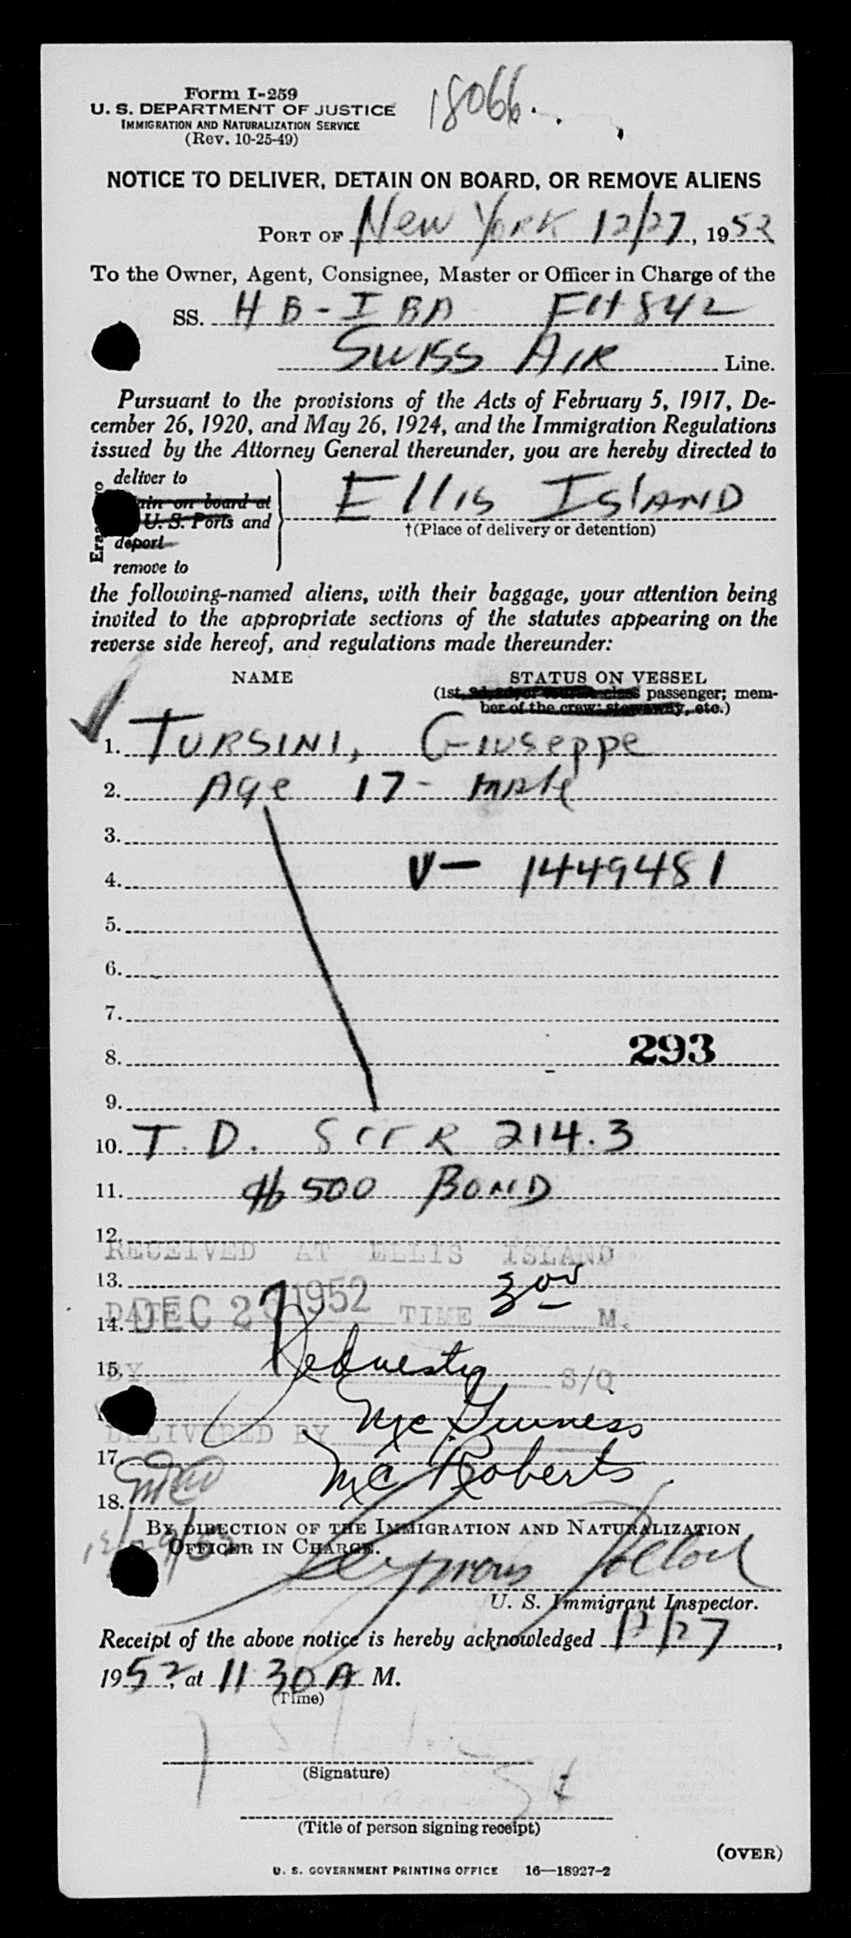 Form I-259
18066.
U. S. DEPARTMENT OF JUSTICE
IMMIGRATION AND NATURALIZATION SERVICE
(Rev. 10-25-49)
NOTICE TO DELIVER, DETAIN ON BOARD, OR REMOVE ALIENS
PORT OF New York 12/27, 1952
To the Owner, Agent, Consignee, Master or Officer in Charge of the
SS. HB-IBA Flt 842
Swiss Air Line.
Pursuant to the provisions of the Acts of February 5, 1917, De-
cember 26, 1920, and May 26, 1924, and the Immigration Regulations
issued by the Attorney General thereunder, you are hereby directed to
deliver to
on board at
U. S. Ports and
deport
remove to
Ellis Island
†(Place of delivery or detention)
the following-named aliens, with their baggage, your attention being
invited to the appropriate sections of the statutes appearing on the
reverse side hereof, and regulations made thereunder:
NAME STATUS ON VESSEL
(1st, class passenger; mem-
ber of the crew; stowaway, etc.)
1. TURSINI, Giuseppe
2. Age 17 - male
3.
4. V- 1449481
5.
6.
7.
8. 293
9.
10. T. D. 8 CFR 214.3
11. $500 BOND
12.
RECEIVED AT ELLIS ISLAND
13. 300
DATE DEC 27 1952 TIME M.
14.
15.
BY S/O
Mc Guinness
DELIVERED BY
17. Mc Roberts
18.
BY DIRECTION OF THE IMMIGRATION AND NATURALIZATION
OFFICER IN CHARGE.
12/29/52
U. S. Immigrant Inspector.
Receipt of the above notice is hereby acknowledged 12/27,
1952, at 11 30 A M.
(Time)
(Signature)
(Title of person signing receipt)
(OVER)
U. S. GOVERNMENT PRINTING OFFICE 16—18927-2